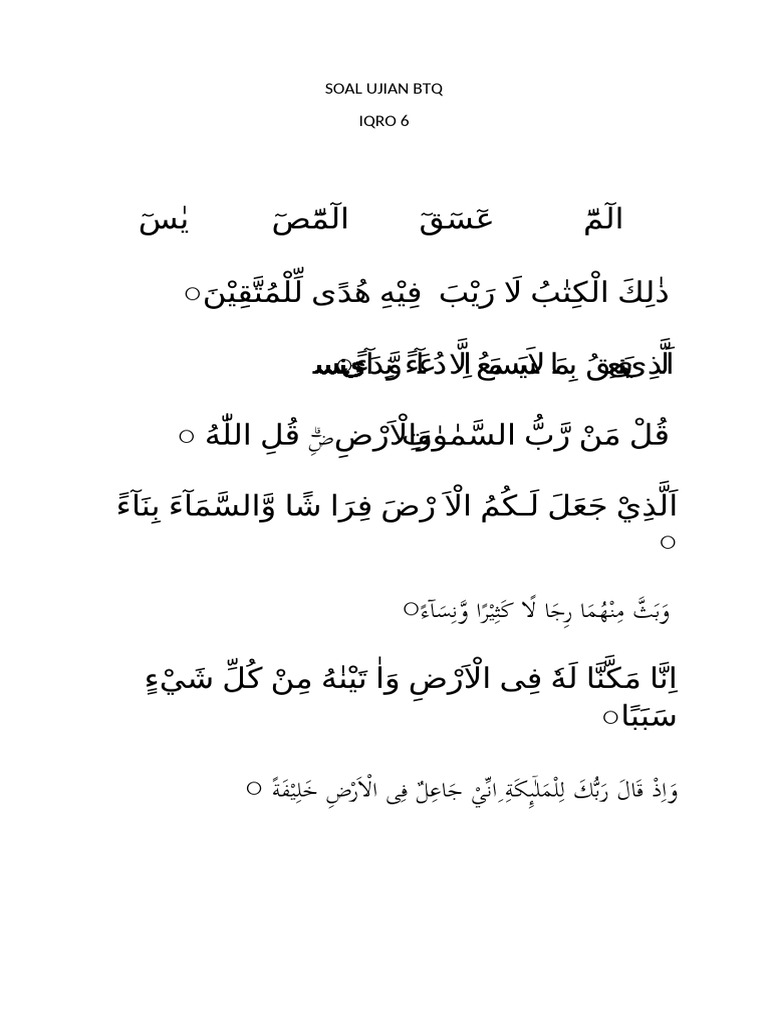 SOAL UJIAN BTQ
IQRO 6
الٓمّٓ عٓسٓقٓ الٓمّٓصٓ يٰسٓ
ذٰلِكَ الْكِتٰبُ لَا رَيْبَ فِيْهِ هُدًى لِّلْمُتَّقِيْنَ○
اَلَّذِيْ يَنْعِقُ بِمَا لَا يَسْمَعُ اِلَّا دُعَآءً وَّنِدَآءً○
قُلْ مَنْ رَّبُّ السَّمٰوٰتِ وَالْاَرْضِۗ قُلِ اللّٰهُ ○
اَلَّذِيْ جَعَلَ لَـكُمُ الْاَ رْضَ فِرَا شًا وَّالسَّمَآءَ بِنَآءً
○
وَبَثَّ مِنْهُمَا رِجَا لًا كَثِيْرًا وَّنِسَآءً○
اِنَّا مَكَّنَّا لَهٗ فِى الْاَرْضِ وَاٰ تَيْنٰهُ مِنْ كُلِّ شَيْءٍ
سَبَبًا○
وَاِذْ قَالَ رَبُّكَ لِلْمَلٰٓئِكَةِ ِانِّيْ جَاعِلٌ فِى الْاَرْضِ خَلِيْفَةً ○